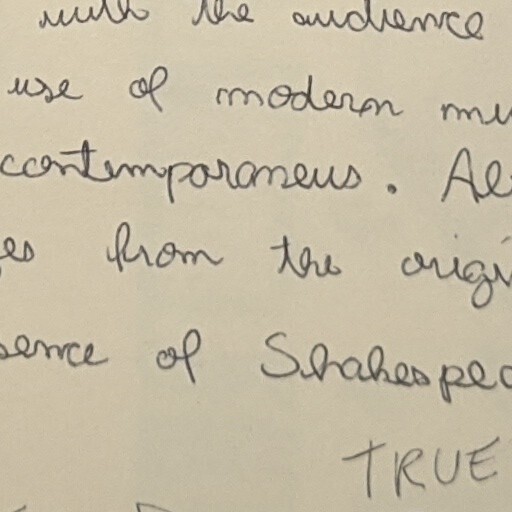 with the audience
use of modern mu
contemporaneus. Al
es from the origi
sence of Shakespea
TRUE